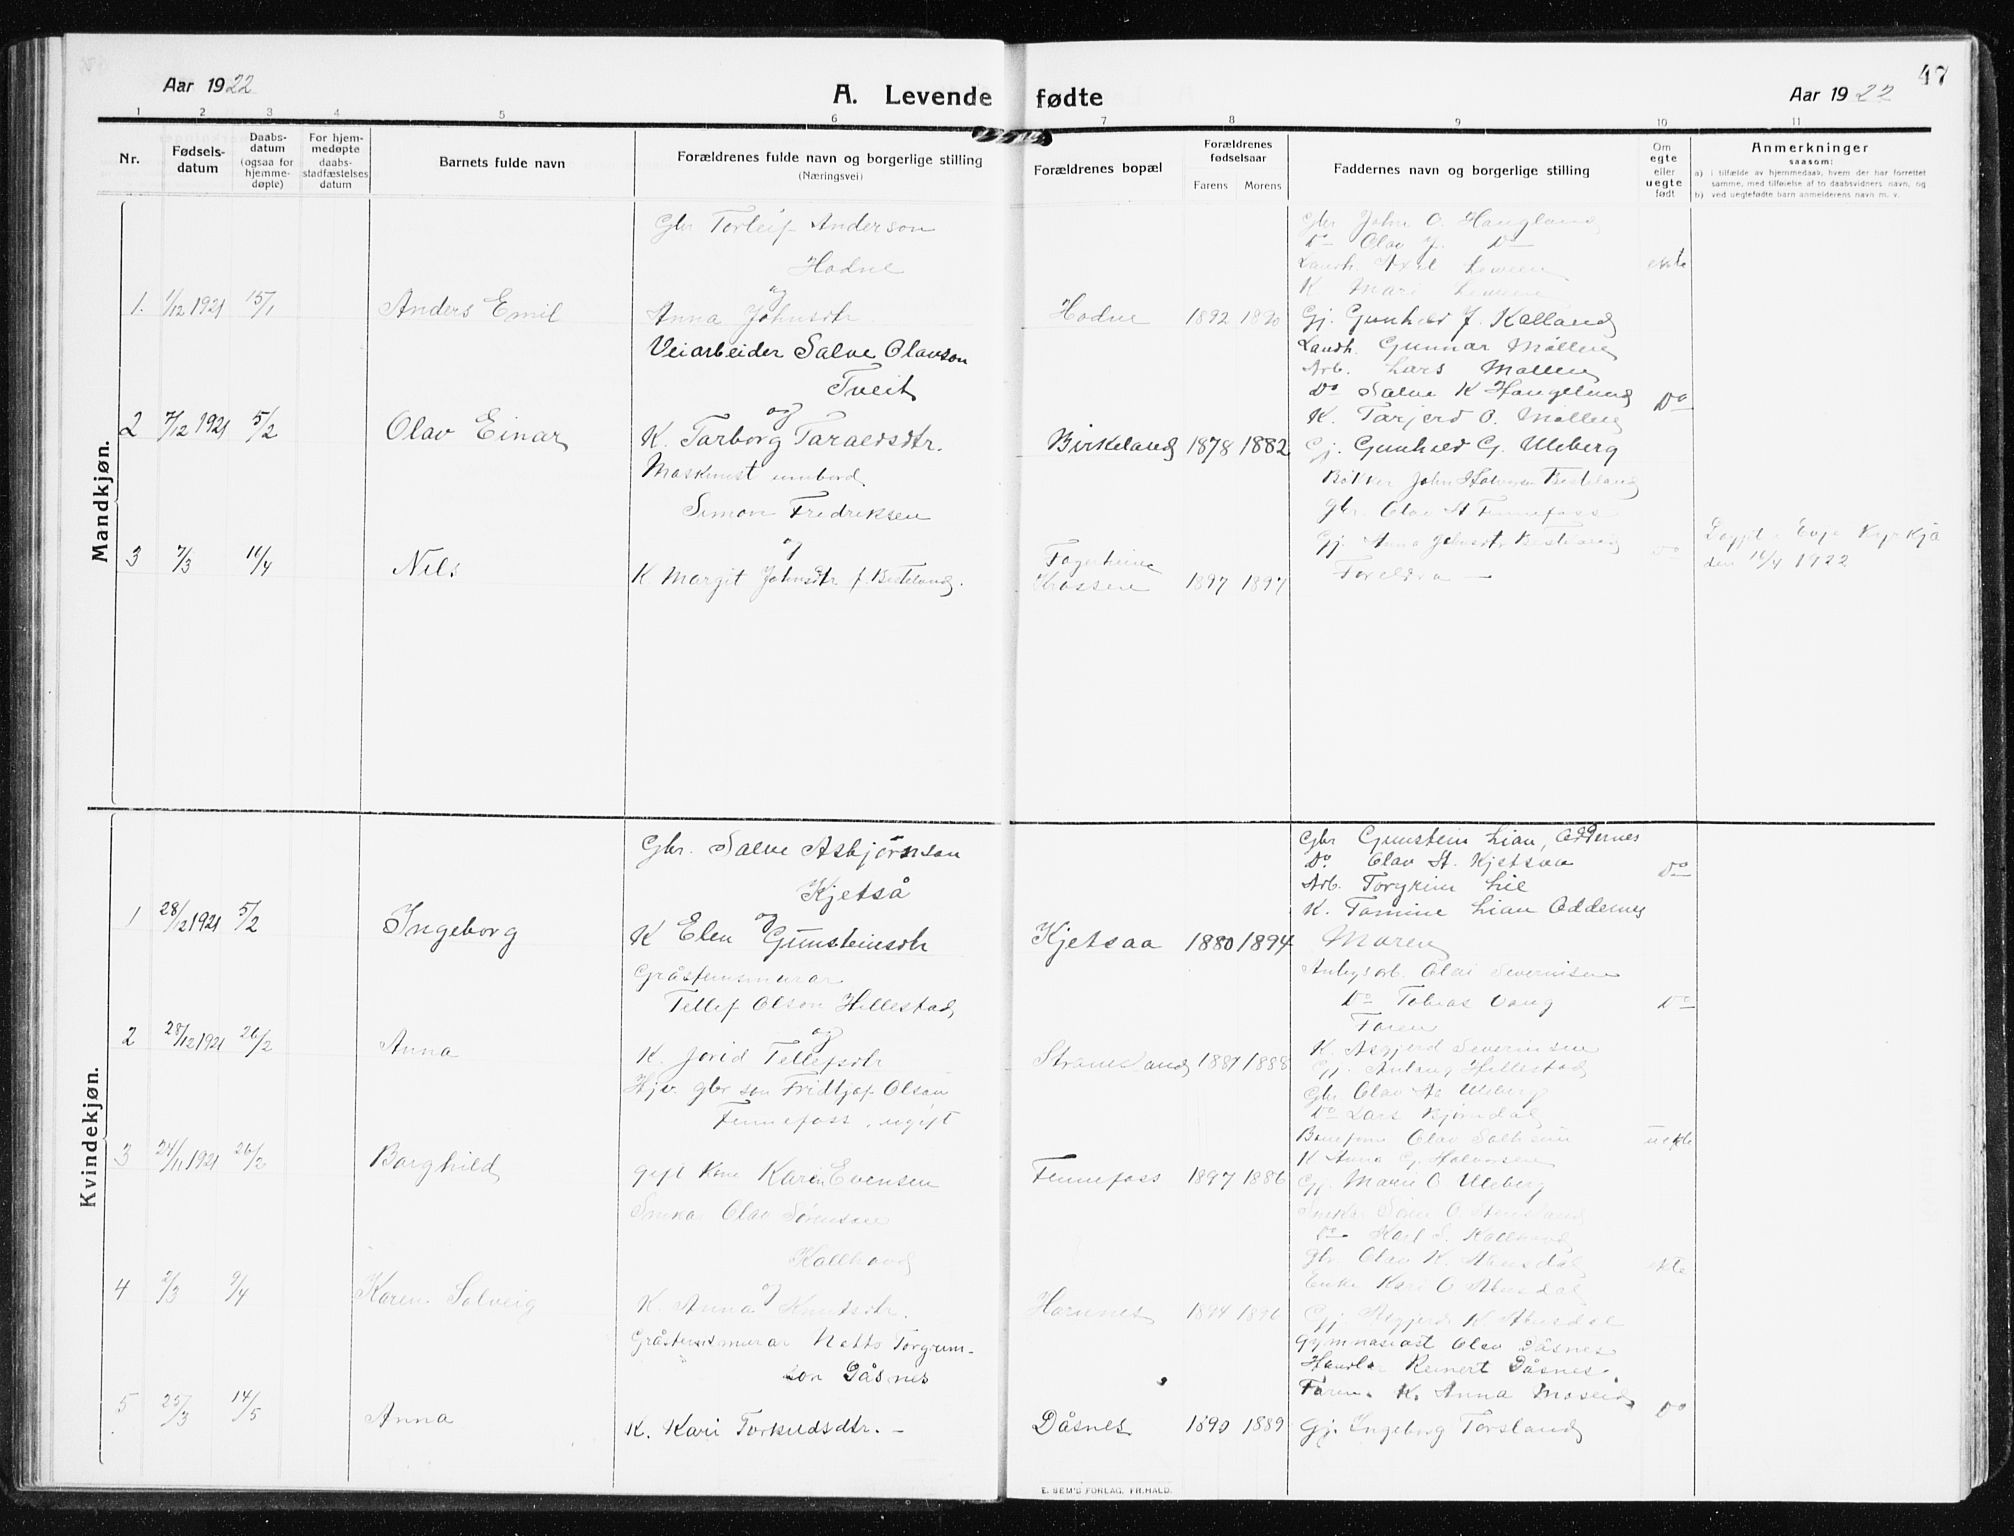 Aar 1922
A. Levende fødte
Aar 1922
47
1 2 3 4 5 6 7 8 9 10 11
Nr.
Fødsels-
datum
Daabs-
datum
(ogsaa for
hjemme-
døpte)
For hjem-
medøpte
daabs-
stadfæstelses
datum
Barnets fulde navn
Forældrenes fulde navn og borgerlige stilling
(Næringsvei)
Forældrenes bopæl
Forældrenes
fødselsaar
Farens Morens
Faddernes navn og borgerlige stilling
Om
egte
eller
uegte
født
Anmerkninger
saasom:
a) i tilfælde av hjemmedaab, hvem der har forrettet
samme, med tilføielse af to daabsvidners navn, og
b) ved uegtefødte barn anmelderens navn m. v.
Mandkjøn.
1. 1/12 1921 15/1
Anders Emil
Gbr Torleif Anderson
Hodne
og
Anna Johnsdtr
Hodne 1892 1890
Gbr John O. Haugland
Do Olav J. Do
Landh. Axel
K Mari
Gj. Gunhild J. Kalland
ekte
2 7/12 1921 5/2
Olav Einar
Veiarbeider Salve Olavson
Tveit
og
K. Tarborg Taraldsdtr.
Birkeland 1878 1882
Landh. Gunnar Mollen
Arb. Lars Mollen
Do Salve K Haugelund
K. Tarjerd O. Mollen
Gj. Gunhild G. Uleberg
Do
3 7/3 16/4
Nils
Maskinist ombord
Simon Fredriksen
og
K Margit Johnsdtr f. Besteland.
Fagerheim
Kossen 1897 1897
Bøkker John Halvorsen Besteland
gbr. Olav St Fennefoss
Gj. Anna Johnsdtr Besteland
Foreldra —
Do
Døypt i Evje Kyrkja
den 16/4 1922
Kvindekjøn.
1 28/12 1921 5/2
Ingeborg
Gbr. Salve Asbjørnson
Kjetså
og
K Elen Gunsteinsdtr
Kjetsaa 1880 1894
Gbr Gunstein Lian, Oddernes
Do Olav St. Kjetsaa
Arb. Torgrim Lie
K. Tomine Lian Oddernes
Moren
Do
2 28/12 1921 26/2
Anna
Gråsteinsmurar
Tellef Olson Hillestad
og
K. Jorid Tellefsdtr
1887 1888
Anlegsarb. Olai Severinsen
Do Tobias Vang
Faren
K. Asgjerd Severinsen
Gj. Hillestad
Do
3 24/11 1921 26/2
Borghild
Hjv. gbr son Fridtjof Olsen
Fennefoss, ugift
gift Kone Karen Evensen
Fennefoss 1897 1886
Gbr Olav As Uleberg
Do Lars Bjørndal
Olav
K Anna G. Halvorsen
Gj. Maren O Uleberg
uekte
4 2/3 9/4
Karen Solveig
Snikar Olav Sørensen
Kallhovd
og
K. Anna Knutsdtr.
Hornnes 1894 1896
Snikar O.
Do Karl S. Kallhovd
Gbr. Olav K. Abusdal
Enke Kari O Abusdal
Gj. Asgjerd K. Abusdal
ekte
5 25/3 14/5
Anna
Gråsteinsmurar Notto Torgrim-
son Dåsnes
K. Kari Torkildsdtr. —
Dåsnes 1890 1889
Gymnasiast Olav Dåsnes
Handlar Reinert Dåsnes.
Faren. K. Anna Moseid
Gj. Ingeborg Torsland
Do
E. SEM'S FORLAG, FR.HALD.